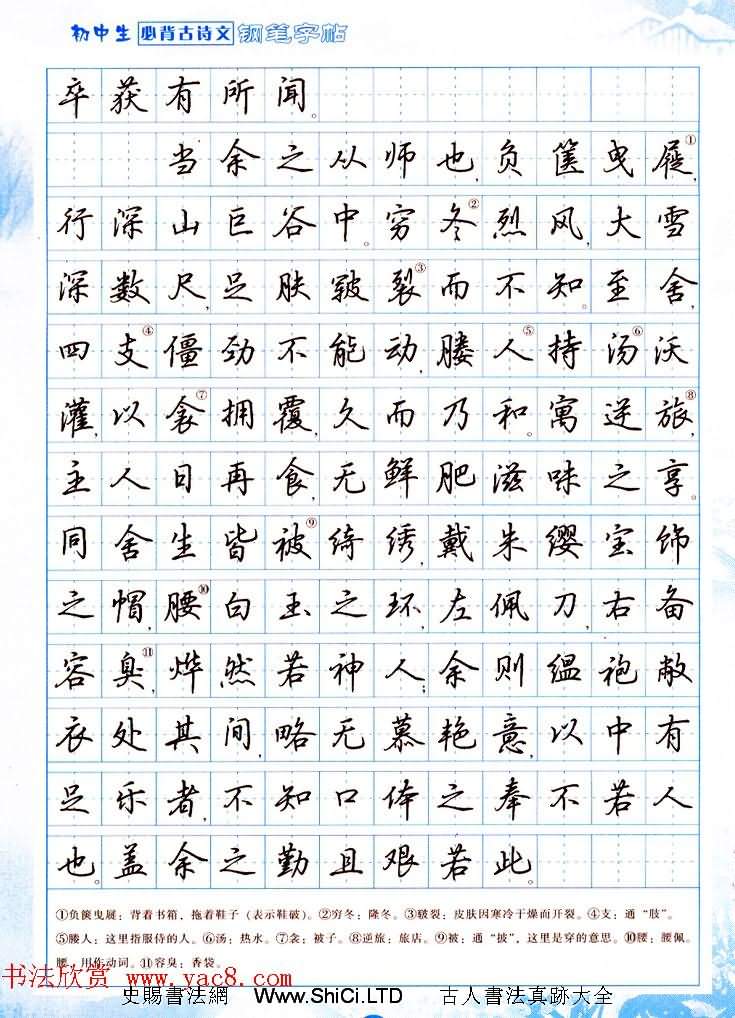 初中生 必背古诗文 钢笔字帖
卒获有所闻。
当余之从师也,负箧曳屣①,
行深山巨谷中。穷冬②烈风,大雪
深数尺,足肤皲裂③而不知。至舍,
四支④僵劲不能动,媵人⑤持汤⑥沃
灌,以衾⑦拥覆,久而乃和。寓逆旅⑧,
主人日再食,无鲜肥滋味之享。
同舍生皆被⑨绮绣,戴朱缨宝饰
之帽,腰⑩白玉之环,左佩刀,右备
容臭⑪,烨然若神人;余则缊袍敝
衣处其间,略无慕艳意,以中有
足乐者,不知口体之奉不若人
也。盖余之勤且艰若此。
①负箧曳屣:背着书箱,拖着鞋子(表示鞋破)。②穷冬:隆冬。③皲裂:皮肤因寒冷干燥而开裂。④支:通“肢”。
⑤媵人:这里指服侍的人。⑥汤:热水。⑦衾:被子。⑧逆旅:旅店。⑨被:通“披”,这里是穿的意思。⑩腰:腰佩。
腰,用作动词。⑪容臭:香袋。
书法欣赏 www.yac8.com
史賜書法網 Www.ShiCi.LTD 古人書法真跡大全